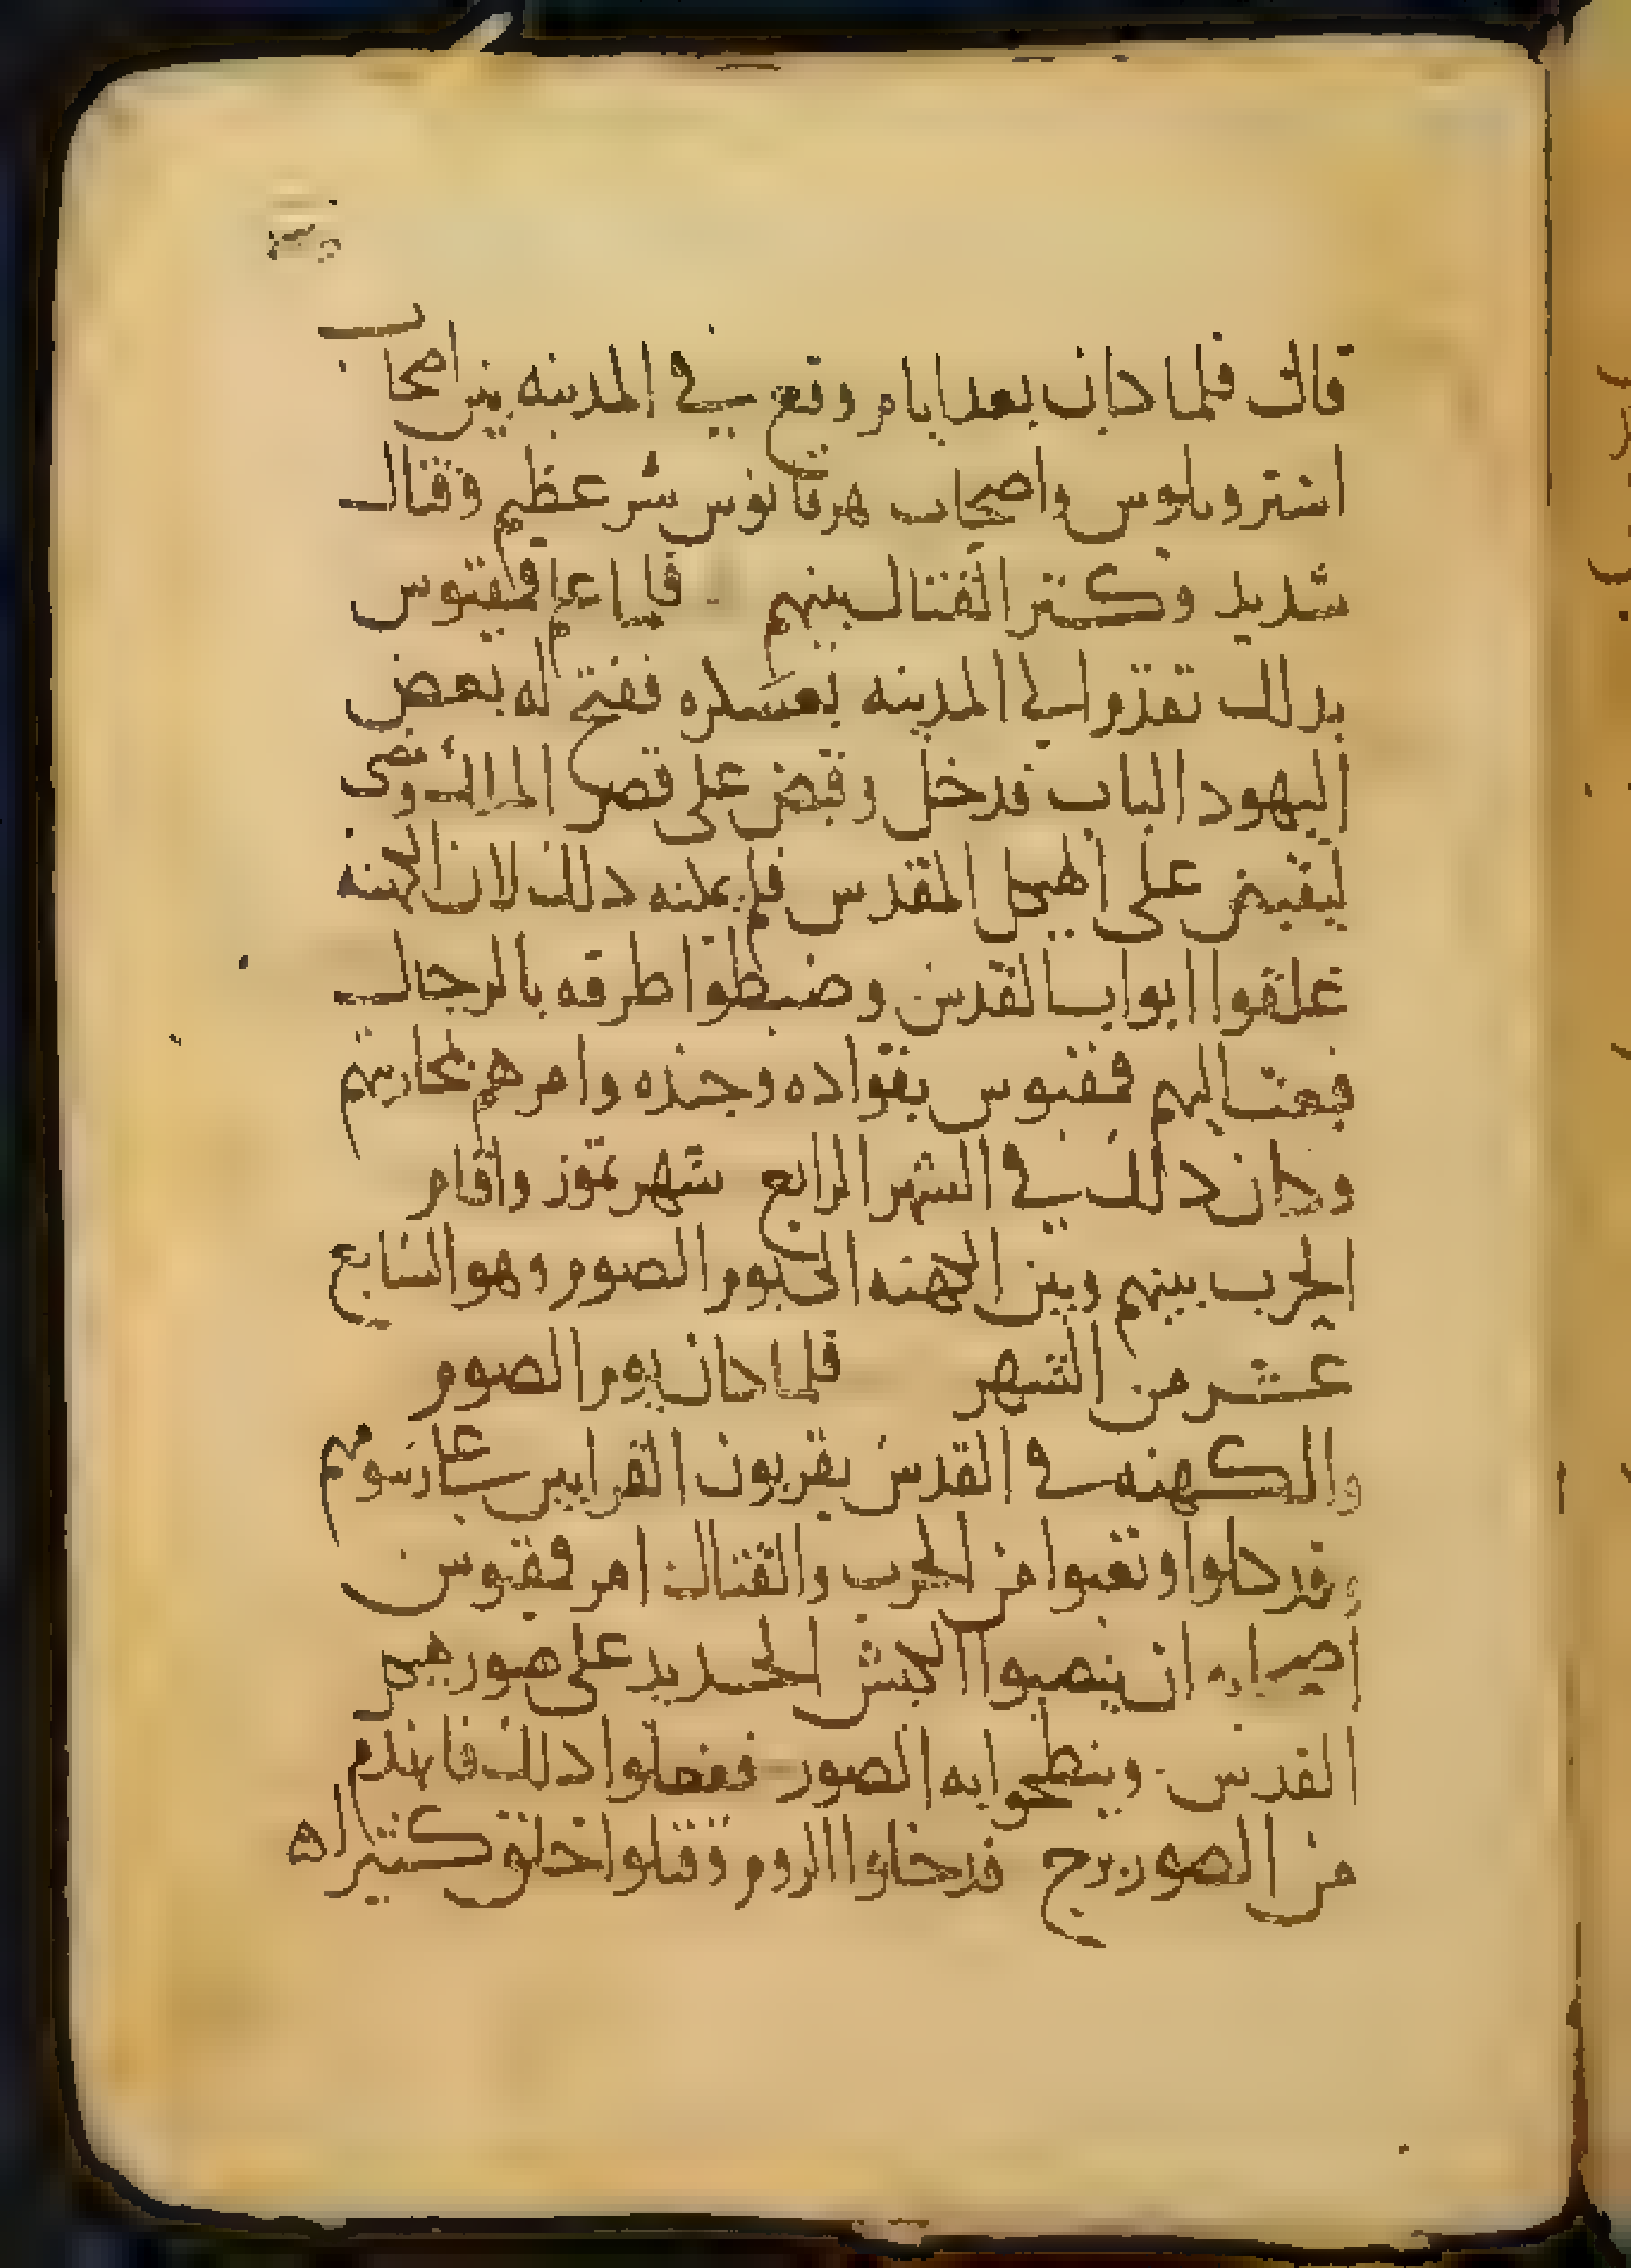 قال فلما كان بعد ايام وقع في المدينه بين اصحاب
استروبلوس واصحاب هرقانوس شر عظيم وقتال
شديد وكثر القتال بينهم فلما علم فمفيوس
بدلك تقدم الي المدينه بعسكره ففتح له بعض
اليهود الباب فدخل وقبض على قصر الملك ومضى
ليقبض على الهيكل المقدس فلم يمكنه دلك لان الكهنه
غلقوا ابواب القدس وضبطوا طرقه بالرجال
فبعث اليهم فمفيوس بقواده وجنده وامرهم بمحاربتهم
وكان دلك في الشهر الرابع شهر تموز واقام
الحرب بينهم وبين الكهنه الى يوم الصوم وهو السابع
عشر من الشهر فلما كان يوم الصوم
والكهنه في القدس يقربون القرابين على رسومهم
وقد كلوا وتعبوا من الحرب والقتال امر فمفيوس
اصحابه ان ينصبوا الكبش الحديد على صور هيكل
القدس وينطحوا به الصور ففعلوا دلك فانهدم
من الصور برج فدخلوا الروم وقتلوا خلق كثير